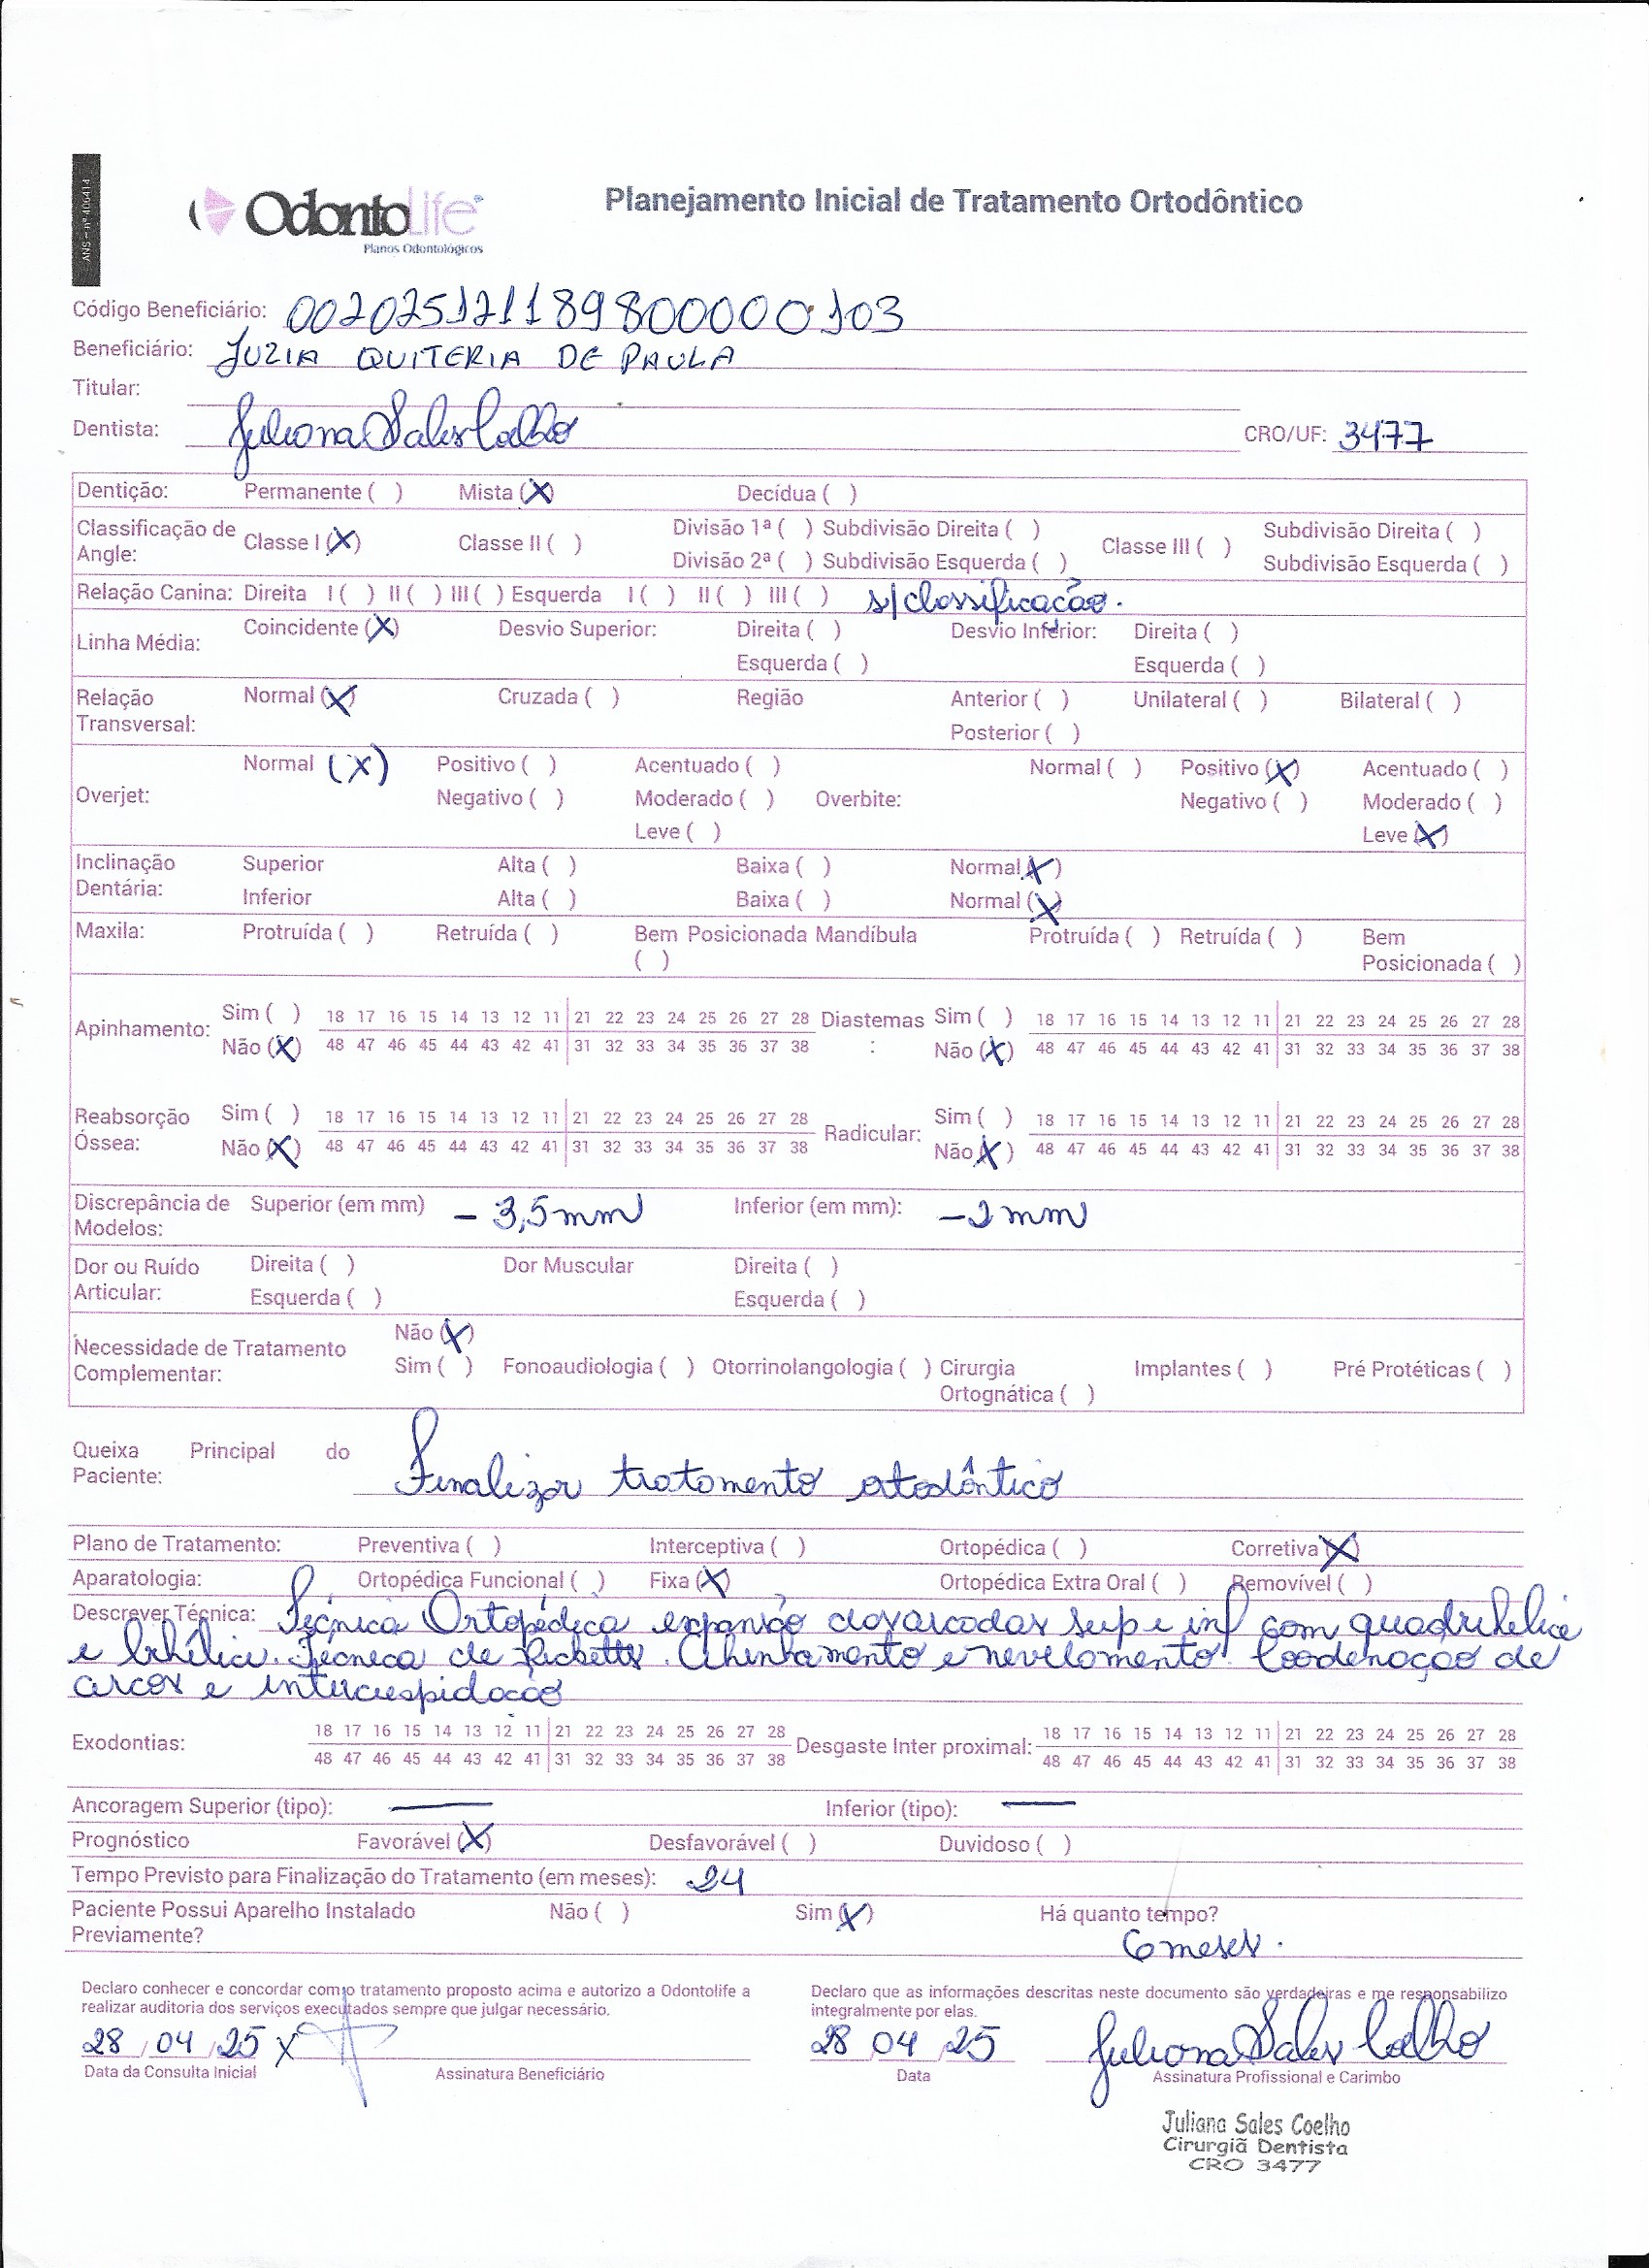 ANS - nº 406414
OdontoLife
Planos Odontológicos
Planejamento Inicial de Tratamento Ortodôntico
Código Beneficiário: 00202512118980000010 3
Beneficiário: LUZIA QUITERIA DE PAULA
Titular:
Dentista: Juliana Sales Coelho CRO/UF: 3477
Dentição: Permanente ( ) Mista (X) Decídua ( )
Classificação de Angle: Classe I (X) Classe II ( ) Divisão 1ª ( ) Subdivisão Direita ( ) Classe III ( ) Subdivisão Direita ( )
Divisão 2ª ( ) Subdivisão Esquerda ( ) Subdivisão Esquerda ( )
Relação Canina: Direita I ( ) II ( ) III ( ) Esquerda I ( ) II ( ) III ( ) s/classificação.
Linha Média: Coincidente (X) Desvio Superior: Direita ( ) Desvio Inferior: Direita ( )
Esquerda ( ) Esquerda ( )
Relação Transversal: Normal (X) Cruzada ( ) Região Anterior ( ) Unilateral ( ) Bilateral ( )
Posterior ( )
Overjet: Normal (X) Positivo ( ) Acentuado ( ) Overbite: Normal ( ) Positivo (X) Acentuado ( )
Negativo ( ) Moderado ( ) Negativo ( ) Moderado ( )
Leve ( ) Leve (X)
Inclinação Dentária: Superior Alta ( ) Baixa ( ) Normal (X)
Inferior Alta ( ) Baixa ( ) Normal (X)
Maxila: Protruída ( ) Retruída ( ) Bem Posicionada ( ) Mandíbula Protruída ( ) Retruída ( ) Bem Posicionada ( )
Apinhamento: Sim ( ) 18 17 16 15 14 13 12 11 21 22 23 24 25 26 27 28 Diastemas : Sim ( ) 18 17 16 15 14 13 12 11 21 22 23 24 25 26 27 28
Não (X) 48 47 46 45 44 43 42 41 31 32 33 34 35 36 37 38 Não (X) 48 47 46 45 44 43 42 41 31 32 33 34 35 36 37 38
Reabsorção Óssea: Sim ( ) 18 17 16 15 14 13 12 11 21 22 23 24 25 26 27 28 Radicular: Sim ( ) 18 17 16 15 14 13 12 11 21 22 23 24 25 26 27 28
Não (X) 48 47 46 45 44 43 42 41 31 32 33 34 35 36 37 38 Não (X) 48 47 46 45 44 43 42 41 31 32 33 34 35 36 37 38
Discrepância de Modelos: Superior (em mm) - 3,5mm Inferior (em mm): -2mm
Dor ou Ruído Articular: Direita ( ) Dor Muscular Direita ( )
Esquerda ( ) Esquerda ( )
Necessidade de Tratamento Complementar: Não (X)
Sim ( ) Fonoaudiologia ( ) Otorrinolangologia ( ) Cirurgia Ortognática ( ) Implantes ( ) Pré Protéticas ( )
Queixa Principal do Paciente: Finalizar tratamento otodôntico
Plano de Tratamento: Preventiva ( ) Interceptiva ( ) Ortopédica ( ) Corretiva (X)
Aparatologia: Ortopédica Funcional ( ) Fixa (X) Ortopédica Extra Oral ( ) Removível ( )
Descrever Técnica: Técnica Ortopédica expansão dos arcadas sup e inf com quadrihelice
e bihélice. Técnica de Ricketts. Alinhamento e nevelamento. Coodenação de
arcos e intercuspidação
Exodontias: 18 17 16 15 14 13 12 11 21 22 23 24 25 26 27 28 Desgaste Inter proximal: 18 17 16 15 14 13 12 11 21 22 23 24 25 26 27 28
48 47 46 45 44 43 42 41 31 32 33 34 35 36 37 38 48 47 46 45 44 43 42 41 31 32 33 34 35 36 37 38
Ancoragem Superior (tipo): — Inferior (tipo): —
Prognóstico Favorável (X) Desfavorável ( ) Duvidoso ( )
Tempo Previsto para Finalização do Tratamento (em meses): 24
Paciente Possui Aparelho Instalado Previamente? Não ( ) Sim (X) Há quanto tempo?
6 meses.
Declaro conhecer e concordar com o tratamento proposto acima e autorizo a Odontolife a
realizar auditoria dos serviços executados sempre que julgar necessário.
Declaro que as informações descritas neste documento são verdadeiras e me responsabilizo
integralmente por elas.
28 / 04 / 25 X 28 04 25 Juliana Sales Coelho
Data da Consulta Inicial Assinatura Beneficiário Data Assinatura Profissional e Carimbo
Juliana Sales Coelho
Cirurgiã Dentista
CRO 3477